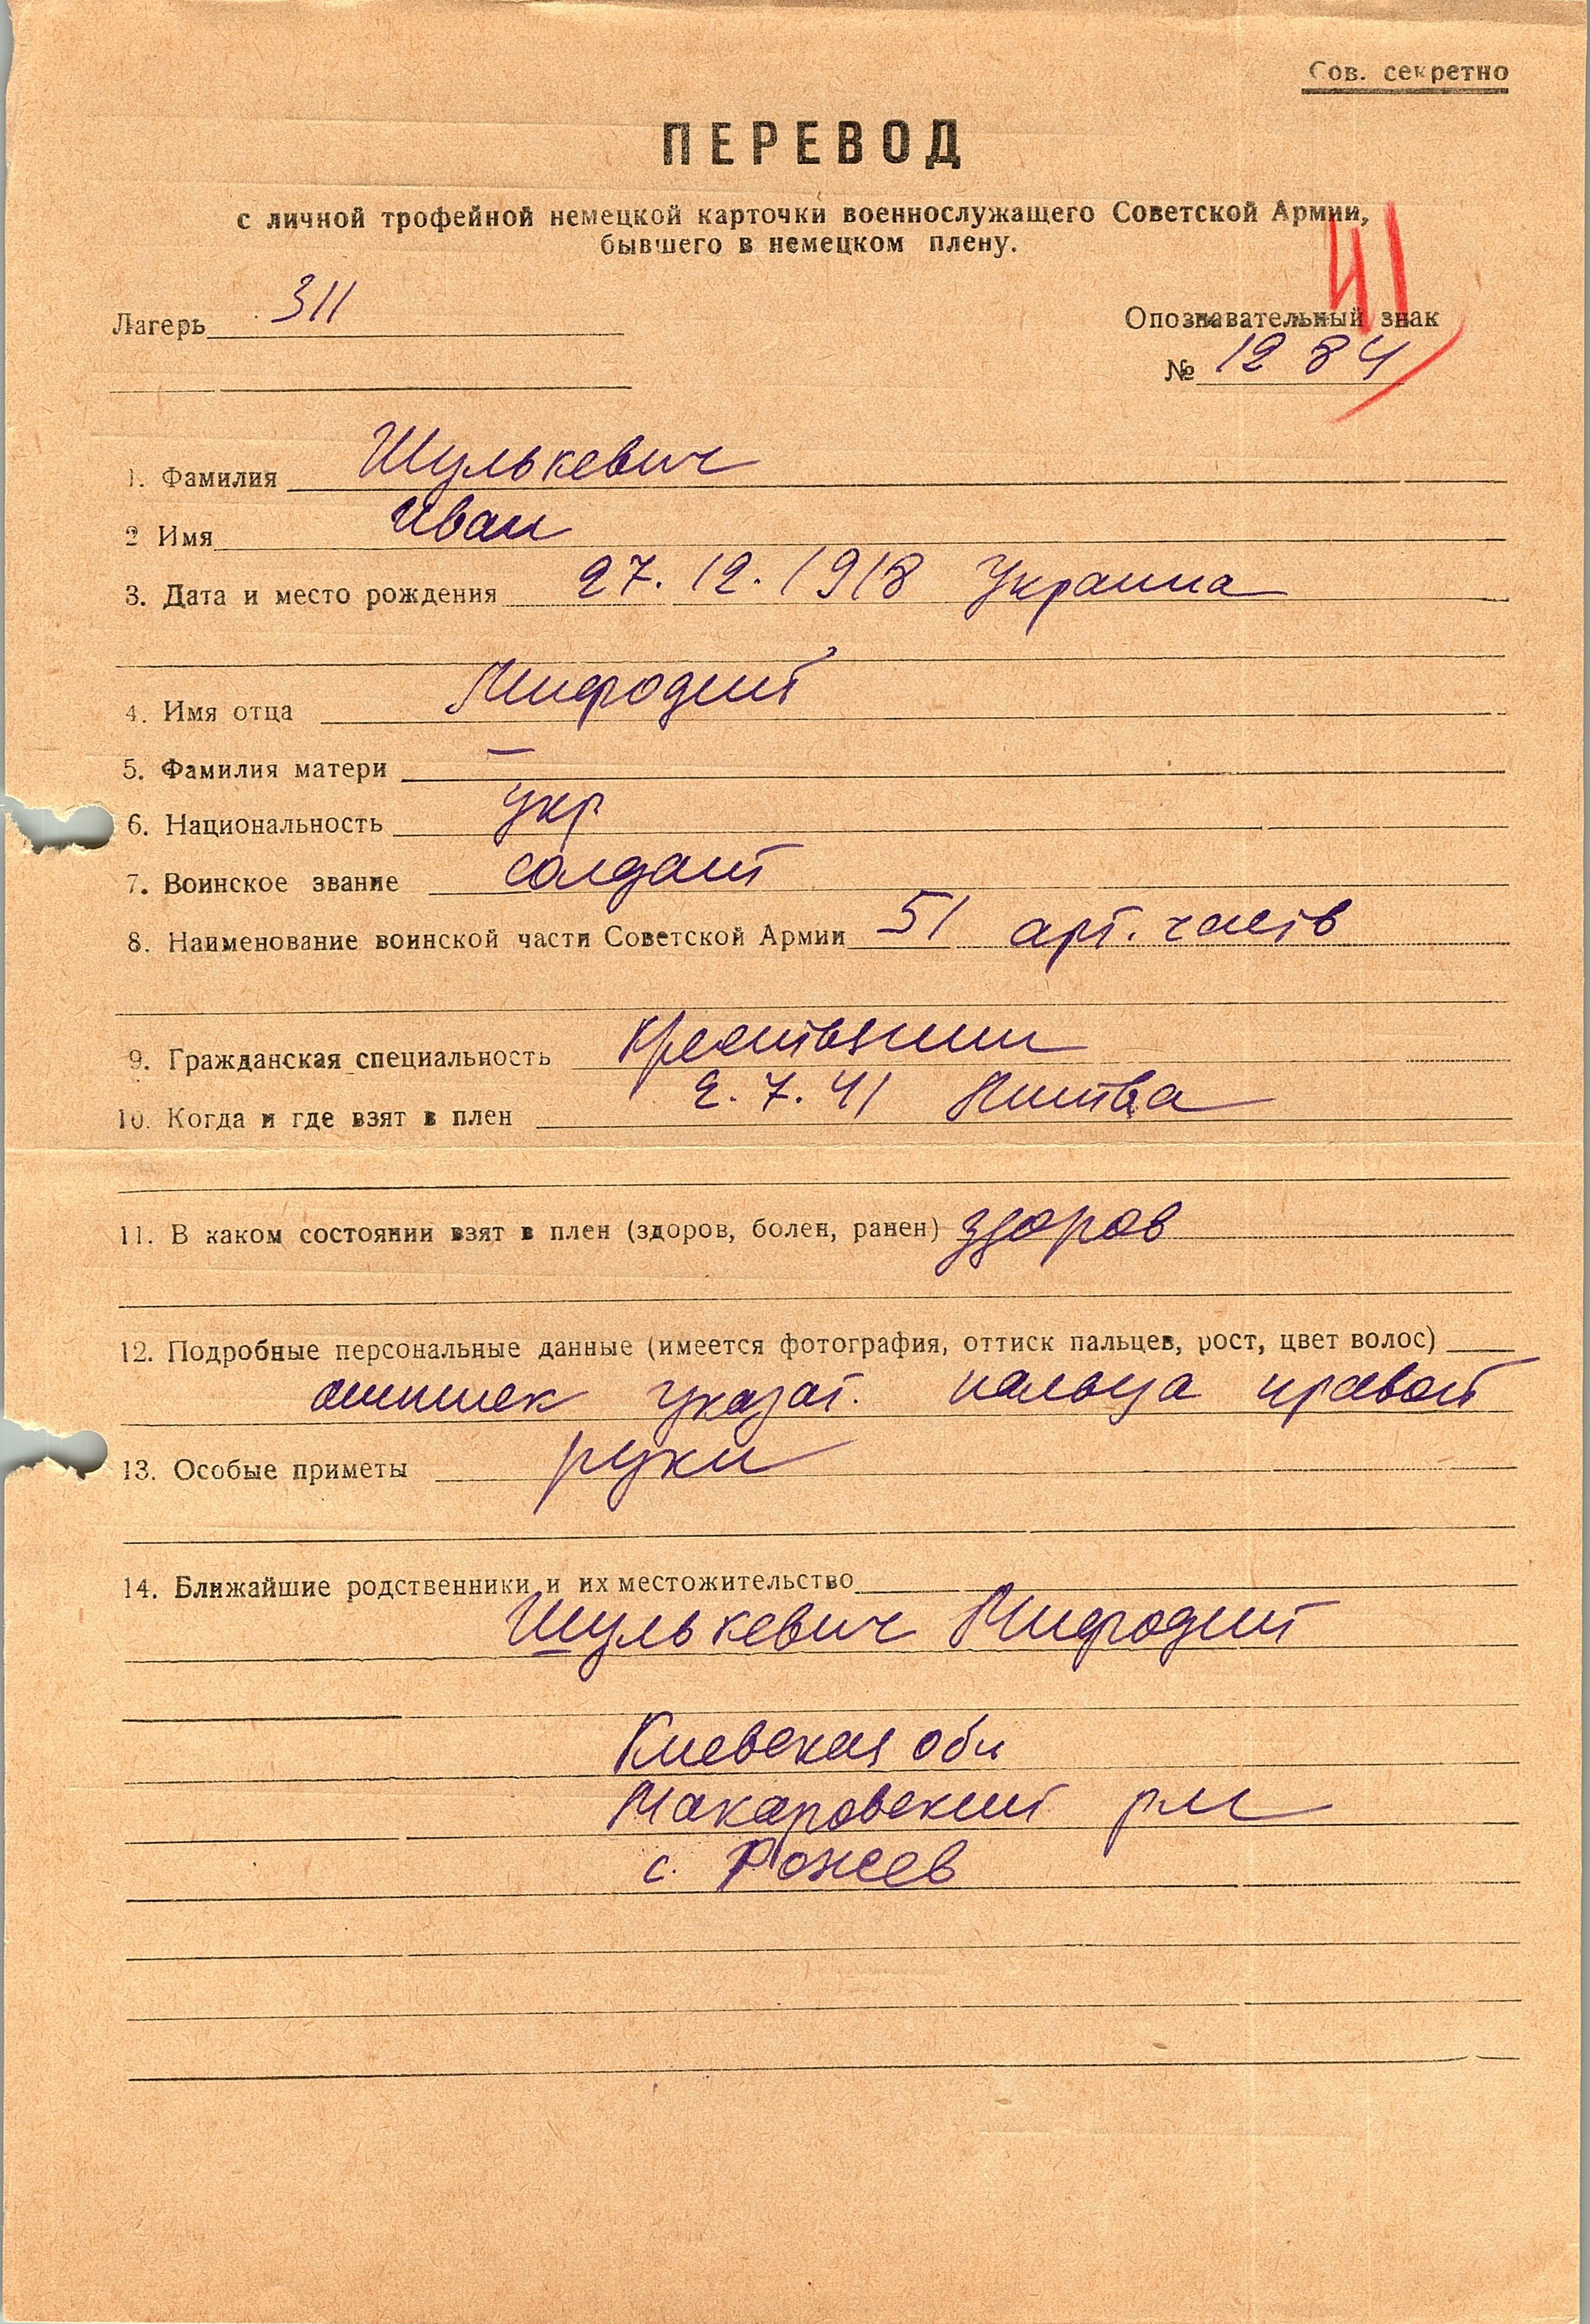 Сов. секретно
ПЕРЕВОД
с личной трофейной немецкой карточки военнослужащего Советской Армии,
бывшего в немецком плену.
41
Лагерь 311
Опознавательный знак
№ 1284
1. Фамилия Шулькевич
2 Имя Иван
3. Дата и место рождения 27. 12. 1918 Украина
4. Имя отца Мифодий
5. Фамилия матери —
6. Национальность укр
7. Воинское звание солдат
8. Наименование воинской части Советской Армии 51 арт. часть
9. Гражданская специальность крестьянин
10. Когда и где взят в плен 2. 7. 41 Литва
11. В каком состоянии взят в плен (здоров, болен, ранен) здоров
12. Подробные персональные данные (имеется фотография, оттиск пальцев, рост, цвет волос)
оттиск указат. пальца правой
13. Особые приметы руки
14. Ближайшие родственники и их местожительство
Шулькевич Мифодий
Киевская обл
Макаровский р-н
с. Рожев